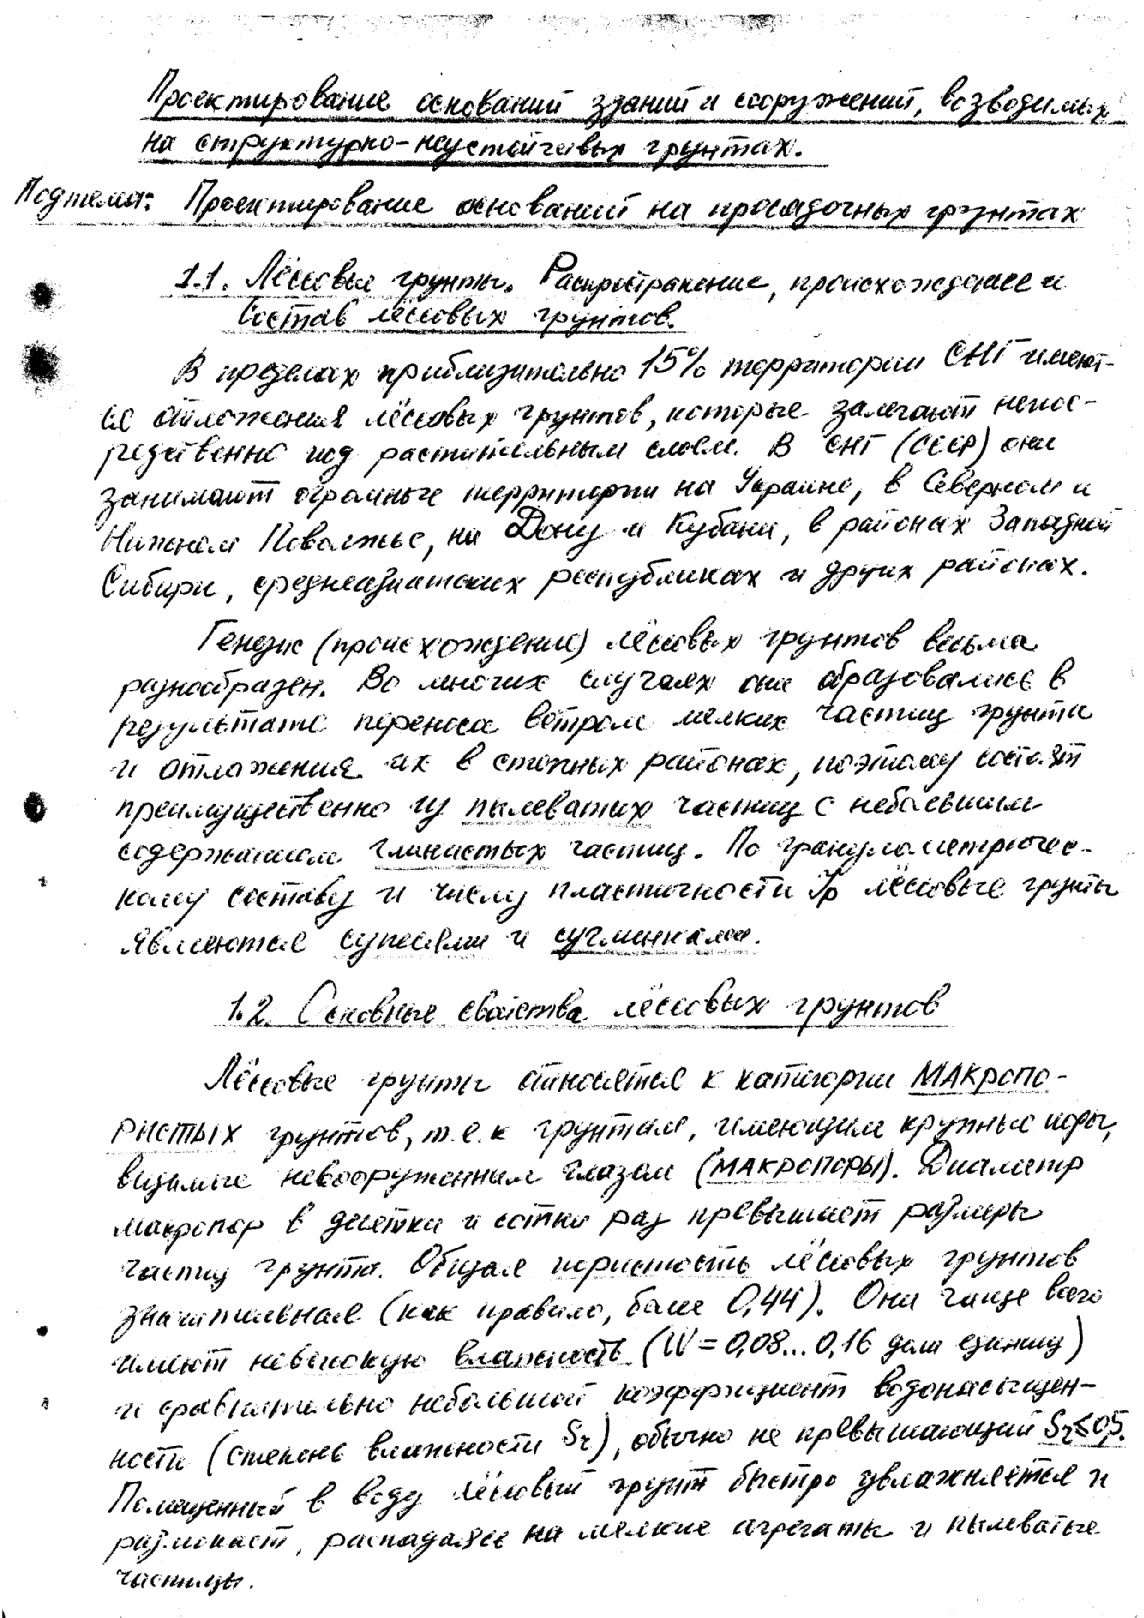 Проектирование оснований зданий и сооружений, возводимых
на структурно-неустойчивых грунтах.
Подтема: Проектирование оснований на просадочных грунтах
1.1. Лёссовые грунты. Распространение, происхождение и
состав лёссовых грунтов.
В пределах приблизительно 15% территории СНГ имеют-
ся отложения лёссовых грунтов, которые залегают непос-
редственно под растительным слоем. В СНГ (СССР) они
занимают огромные территории на Украине, в Северном и
Нижнем Поволжье, на Дону и Кубани, в районах Западной
Сибири, среднеазиатских республиках и других районах.
Генезис (происхождение) лёссовых грунтов весьма
разнообразен. Во многих случаях они образовались в
результате переноса ветром мелких частиц грунта
и отложения их в степных районах, поэтому состоят
преимущественно из пылеватых частиц с небольшим
содержанием глинистых частиц. По гранулометричес-
кому составу и числу пластичности Ip лёссовые грунты
являются супесями и суглинками.
1.2. Основные свойства лёссовых грунтов
Лёссовые грунты относятся к категории МАКРОПО-
РИСТЫХ грунтов, т.е. к грунтам, имеющим крупные поры,
видимые невооруженным глазом (МАКРОПОРЫ). Диаметр
макропор в десятки и сотни раз превышает размеры
частиц грунта. Общая пористость лёссовых грунтов
значительная (как правило, более 0,44). Они чаще всего
имеют невысокую влажность (W = 0,08...0,16 доли единиц)
и сравнительно небольшой коэффициент водонасыщен-
ности (степень влажности Sr), обычно не превышающий Sr≤0,5.
Помещенный в воду лёссовый грунт быстро увлажняется и
размокает, распадаясь на мелкие агрегаты и пылеватые
частицы.